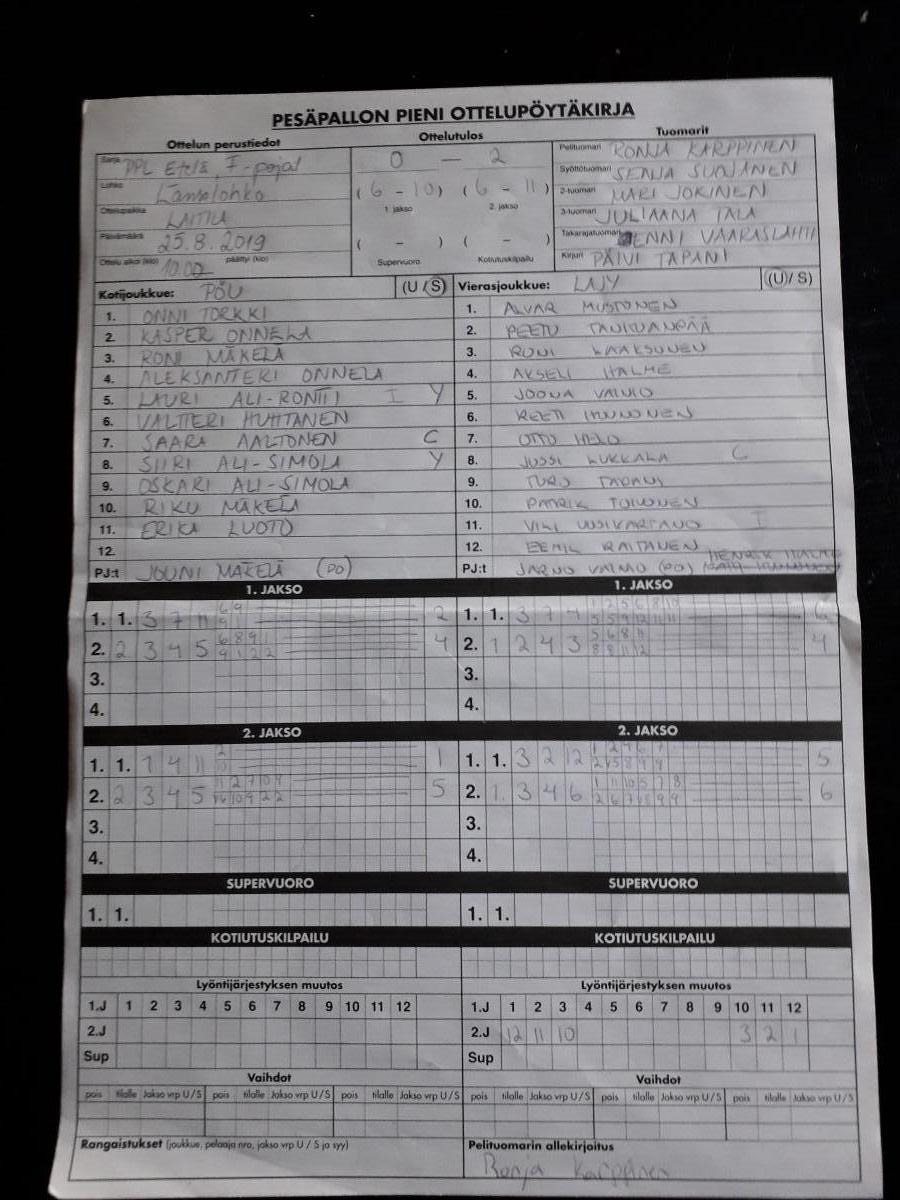 PESÄPALLON PIENI OTTELUPÖYTÄKIRJA
Ottelun perustiedot Ottelutulos Tuomarit
Sarja PPL Etelä, F-pojat
Lohko Länsilohko
Ottelupaikka LAITILA
Päivämäärä 25.8.2019
Ottelu alkoi (klo) 10.00 päättyi (klo)
0 – 2
(6 – 10) (6 – 11)
1. jakso 2. jakso
( – ) ( – )
Supervuoro Kotiutuskilpailu
Pelituomari RONJA KARPPINEN
Syöttötuomari SENJA SUNJANEN
2-tuomari MARI JOKINEN
3-tuomari JULIAANA TALA
Takarajatuomari JENNI VAARASLAHTI
Kirjuri PÄIVI TAPANI
Kotijoukkue: PÖU (U / S)
1. ONNI TORKKI
2. KASPER ONNELA
3. RONI MÄKELÄ
4. ALEKSANTERI ONNELA
5. LAURI ALI-RONTTI I Y
6. VALTTERI HUHTANEN
7. SAARA AALTONEN C
8. SIIRI ALI-SIMOLA Y
9. OSKARI ALI-SIMOLA
10. RIKU MÄKELÄ
11. ERIKA LUOTO
12.
PJ:t JOUNI MÄKELÄ (PO)
Vierasjoukkue: LAJY (U / S)
1. ALVAR MUSTONEN
2. PEETU
3. RONI LAAKSONEN
4. AKSELI HALME
5. JOONA VAINIO
6.
7. OTTO HELO
8. JUSSI KUKKALA C
9. TURO TAPANI
10. PATRIK TOIVONEN
11. VILI UUSIKARTANO I
12. EEMIL RAITANEN
PJ:t JARNO VAINIO (PO) HENRIK HALME
1. JAKSO 1. JAKSO
1. 1. 3 7 11 2
2. 2 3 4 5 4
3.
4.
1. 1. 3 7 4 6
2. 1 2 4 3 4
3.
4.
2. JAKSO 2. JAKSO
1. 1. 7 4 11 1
2. 2 3 4 5 5
3.
4.
1. 1. 3 2 12 5
2. 1. 3 4 6 6
3.
4.
SUPERVUORO SUPERVUORO
1. 1. 1. 1.
KOTIUTUSKILPAILU KOTIUTUSKILPAILU
Lyöntijärjestyksen muutos Lyöntijärjestyksen muutos
1.J 1 2 3 4 5 6 7 8 9 10 11 12
2.J
Sup
1.J 1 2 3 4 5 6 7 8 9 10 11 12
2.J 12 11 10 3 2 1
Sup
Vaihdot Vaihdot
pois tilalle Jakso vrp U / S pois tilalle Jakso vrp U / S pois tilalle Jakso vrp U / S
pois tilalle Jakso vrp U / S pois tilalle Jakso vrp U / S pois tilalle Jakso vrp U / S
Rangaistukset (joukkue, pelaaja nro, jakso vrp U / S ja syy)
Pelituomarin allekirjoitus
Ronja Karppinen